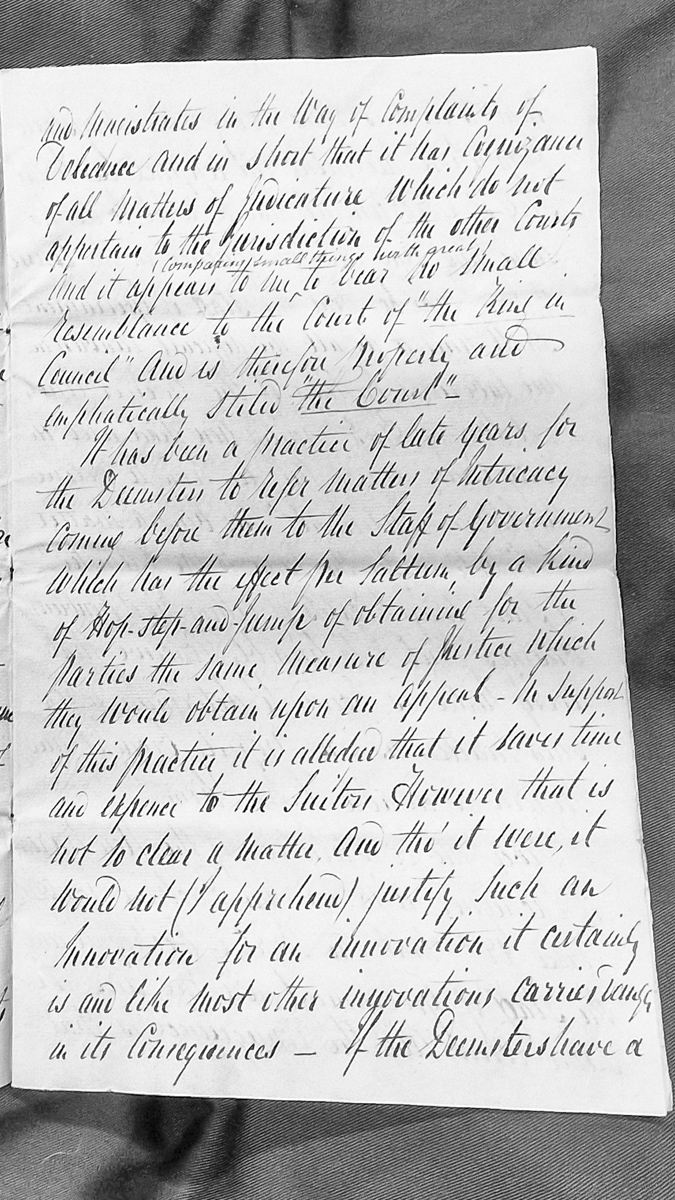 and Magistrates in the Way of Complaints of
Doleance and in short that it has Cognizance
of all Matters of Judicature Which do not
appertain to the Jurisdiction of the other Courts
(Comparing small things with great
And it appears to me to bear no small
resemblance to the Court of "the King in
Council" And is therefore properly and
emphatically stiled "the Court"-
It has been a practice of late years for
the Deemsters to refer matters of Intricacy
coming before them to the Staff of Government
Which has the effect per Saltum, by a kind
of Hop-step-and-Jump of obtaining for the
parties the same Measure of Justice which
they would obtain upon an appeal - In support
of this practice it is alledged that it saves time
and expence to the Suitors However that is
not so clear a matter. And tho' it were, it
would not (I apprehend) justify such an
Innovation for an innovation it certainly
is and like most other innovations carries
in its Consequences — If the Deemsters have a